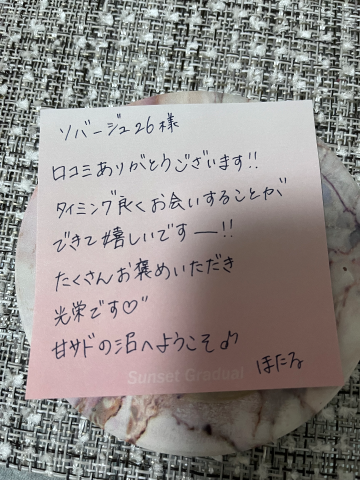 ソバージュ26様
口コミありがとうございます!!
タイミング良くお会いすることが
できて嬉しいですー!!
たくさんお褒めいただき
光栄です♡"
甘サドの沼へようこそ♪
ほたる
Sunset Gradual